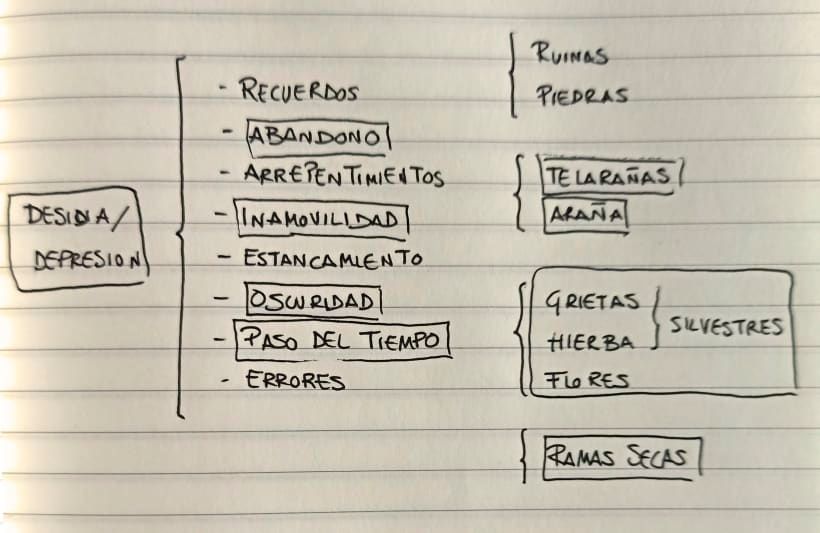 DESIDIA/
DEPRESION
- RECUERDOS
- ABANDONO
- ARREPENTIMIENTOS
- INAMOVILIDAD
- ESTANCAMIENTO
- OSCURIDAD
- PASO DEL TIEMPO
- ERRORES
RUINAS
PIEDRAS
TELARAÑAS
ARAÑA
GRIETAS
HIERBA
SILVESTRES
FLORES
RAMAS SECAS